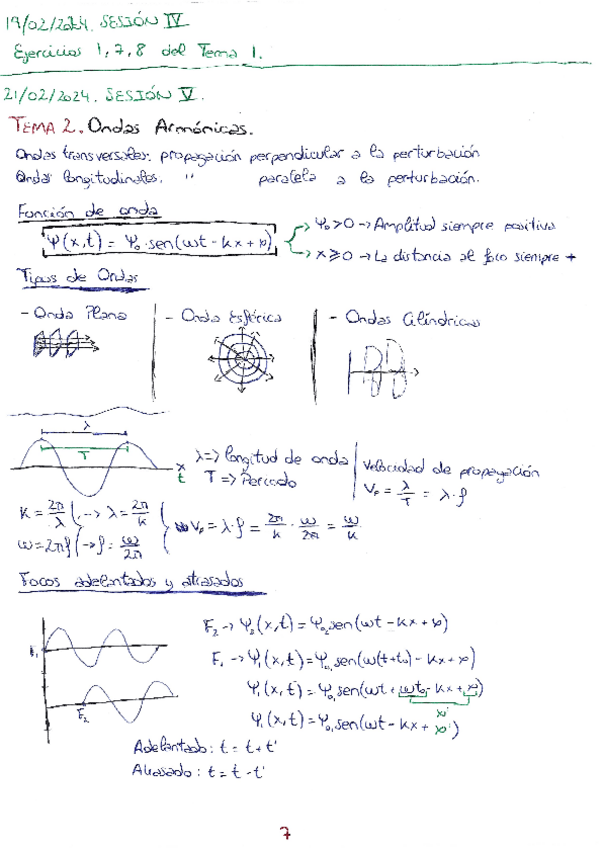 19/02/2024. SESIÓN IV
Ejercicios 1, 7, 8 del Tema 1.
21/02/2024. SESIÓN V.
TEMA 2. Ondas Armónicas.
Ondas transversales: propagación perpendicular a la perturbación
Ondas longitudinales. " paralela a la perturbación.
Función de onda
Ψ(x,t) = Ψ₀·sen(ωt - kx + φ)
Ψ₀ > 0 → Amplitud siempre positiva
x ≥ 0 → La distancia al foco siempre +
Tipos de Ondas
- Onda Plana - Onda Esférica - Ondas Cilíndricas
λ
T
x
t
λ => longitud de onda
T => Periodo
Velocidad de propagación
Vp = λ/T = λ·f
K = 2π/λ → λ = 2π/k
ω = 2πf → f = ω/2π
Vp = λ·f = 2π/k · ω/2π = ω/k
Focos adelantados y atrasados
F₁
F₂
F₂ → Ψ₂(x,t) = Ψ₀₂ sen(ωt - kx + φ)
F₁ → Ψ₁(x,t) = Ψ₀₁ sen(ω(t+t₀) - kx + φ)
Ψ₁(x,t) = Ψ₀₁ sen(ωt + ωt₀ - kx + φ)
φ'
Ψ₁(x,t) = Ψ₀₁ sen(ωt - kx + φ')
Adelantado: t = t + t'
Atrasado: t = t - t'
7